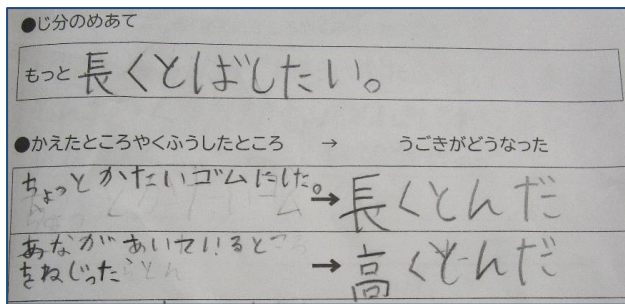 ●じ分のめあて
もっと 長くとばしたい。
●かえたところやくふうしたところ → うごきがどうなった
ちょっとかたいゴムにした。 → 長くとんだ
あながあいているところ
をねじったら → 高くとんだ